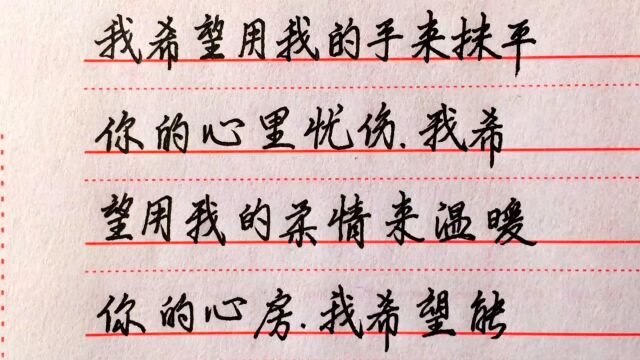 我希望用我的手来抹平
你的心里忧伤.我希
望用我的柔情来温暖
你的心房.我希望能